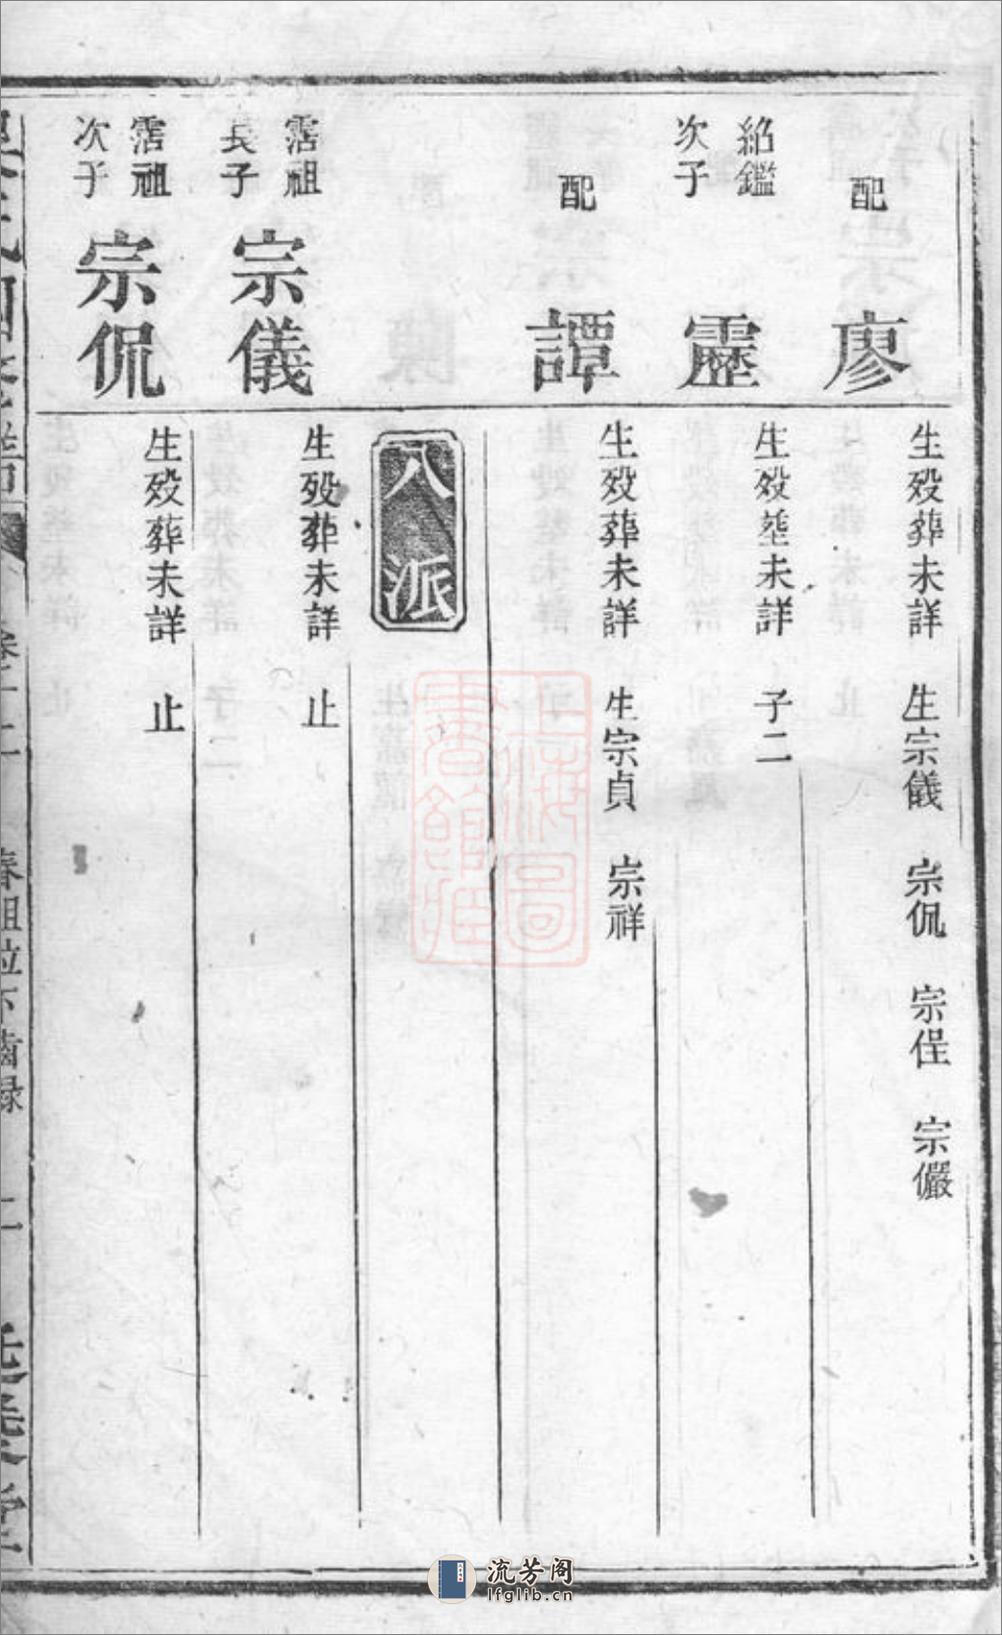 配
廖
生殁葬未詳 生宗儀 宗侃 宗侱 宗儼
紹鑑
次子
靂
生殁塟未詳 子二
配
譚
生殁葬未詳 生宗貞 宗祥
八派
霑祖
長子
宗儀
生殁葬未詳 止
霑祖
次子
宗侃
生殁葬未詳 止
春祖位下齒録
上海圖書館藏
流芳阁
lfglib.cn